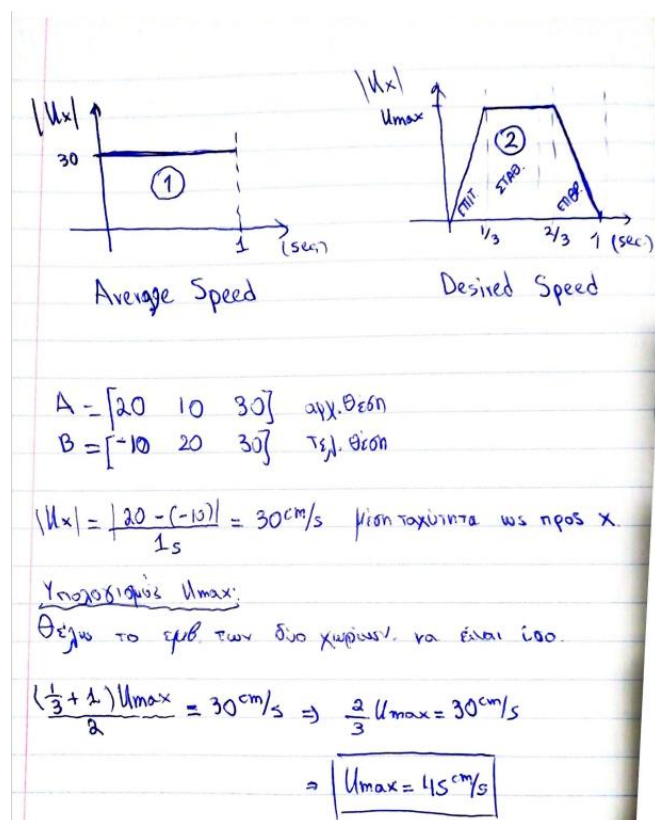 |Ux|
30
1
1
(sec.)
Average Speed
|Ux|
Umax
2
ΕΠΙΤ.
ΣΤΑΘ.
ΕΠΙΒΡ.
1/3
2/3
1 (sec.)
Desired Speed
A = [20 10 30] αρχ. θέση
B = [-10 20 30] τελ. θέση
|Ux| = |20 - (-10)| / 1s = 30 cm/s μέση ταχύτητα ως προς x.
Υπολογισμός Umax:
Θέλω το εμβ. των δύο χωρίων. να είναι ίσο.
(1/3 + 1) Umax / 2 = 30 cm/s => 2/3 Umax = 30 cm/s
=> Umax = 45 cm/s